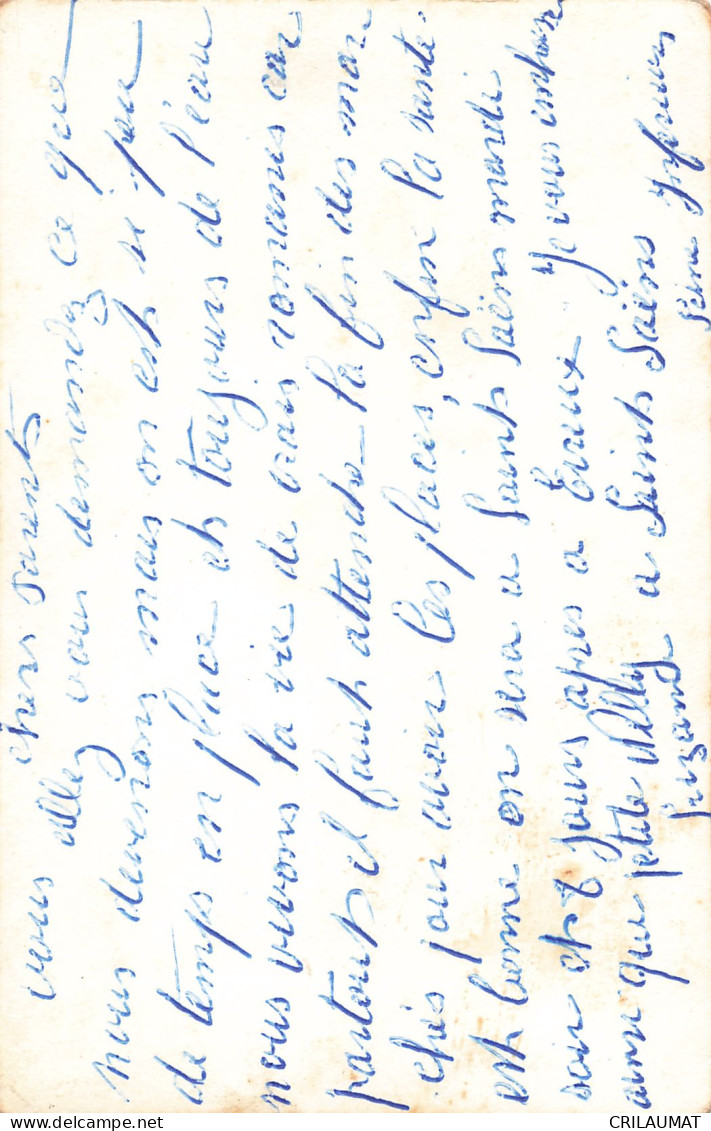 chers parents
vous allez vous demandez ce que
nous devenons mais on est si peu
de temps en place et toujours de l'eau
nous vivons la vie de vrais romanos car
partout il faut attendre la fin des mar
chés pour avoir les places, enfin la santé
est bonne on sera a Saint Saëns mardi
soir et 8 jours apres a Evreux. Je vous embrasse
ainsi que petite Nelly a Saint Saëns Inferieure
Suzanne
Seine
CRILAUMAT